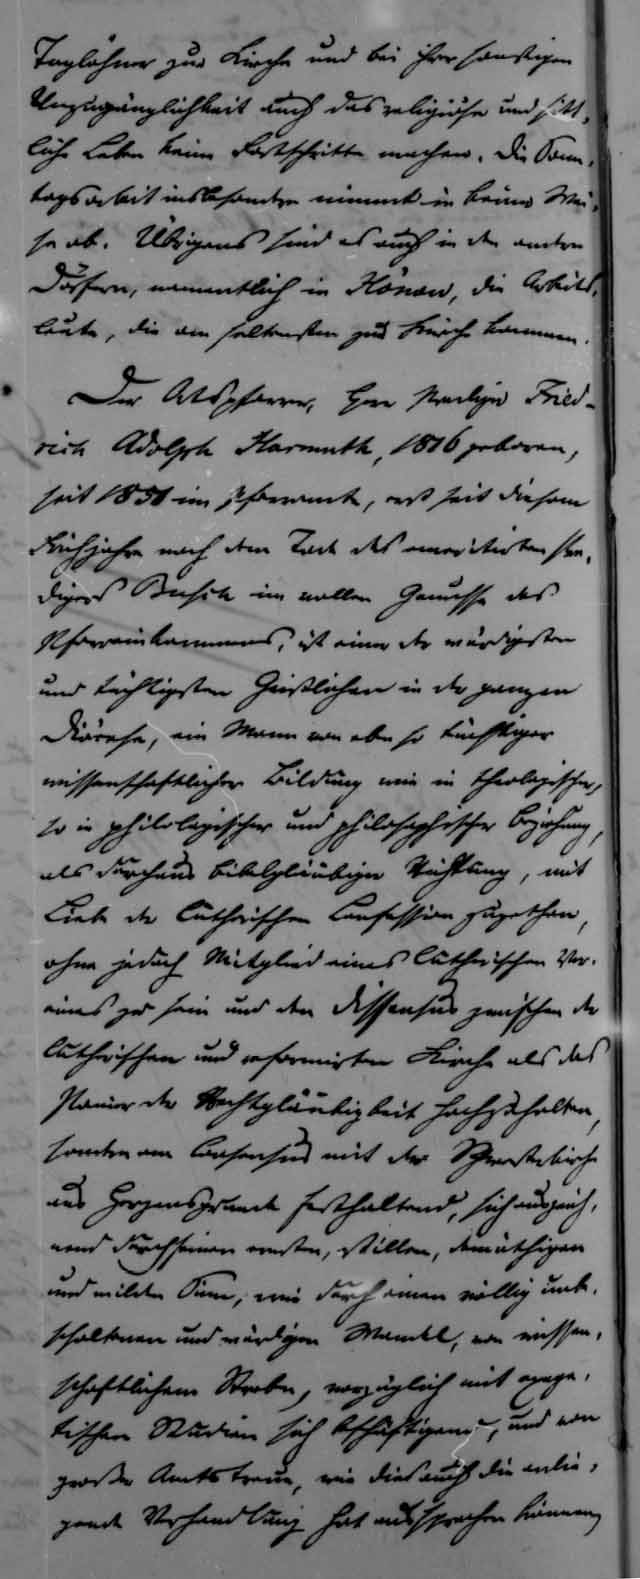 Taglöhner zur Kirche und bei ihrer sonstigen
Unzugänglichkeit auch das religiöse und sitt-
liche Leben keine Fortschritte machen. Die Sonn-
tagsarbeit insbesondere nimmt in keiner Wei-
se ab. Übrigens sind es auch in den andern
Dörfern, namentlich in Hönow, die Arbeits-
leute, die am seltensten zur Kirche kommen.
Der Ortspfarrer, Herr Prediger Fried-
rich Adolph Harmuth, 1816 geboren,
seit 1851 im Pfarramte, erst seit diesem
Frühjahre nach dem Tode des emeritirten Pre-
digers Busch im vollen Genusse des
Pfarreinkommens, ist einer der würdigsten
und tüchtigsten Geistlichen in der ganzen
Diöcese, ein Mann von eben so tüchtiger
wissenschaftlicher Bildung wie in theologischer,
so in philologischer und philosophischer Beziehung,
als durchaus bibelgläubiger Richtung, mit
Liebe der lutherischen Confession zugethan,
ohne jedoch Mitglied eines lutherischen Ver-
eines zu sein und den Dissensus zwischen der
lutherischen und reformirten Kirche als das
Panier der Rechtgläubigkeit hochzuhalten,
sondern am Consensus mit der Schwesterkirche
aus Herzensgrunde festhaltend, sich auszeich-
nend durch seinen ernsten, stillen, demüthigen
und milden Sinn, wie durch einen völlig unbe-
scholtenen und würdigen Wandel, von wissen-
schaftlichem Streben, vorzüglich mit exege-
tischen Studien sich beschäftigend, und von
großer Amtstreue, wie dies auch die anlie-
gende Verhandlung hat aussprechen können,